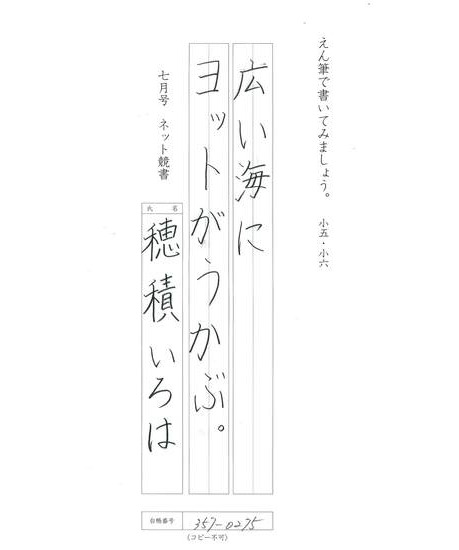 えん筆で書いてみましょう。　小五・小六
広い海に
ヨットがうかぶ。
七月号　ネット競書
氏名
穂積いろは
台帳番号
357-0275
(コピー不可)